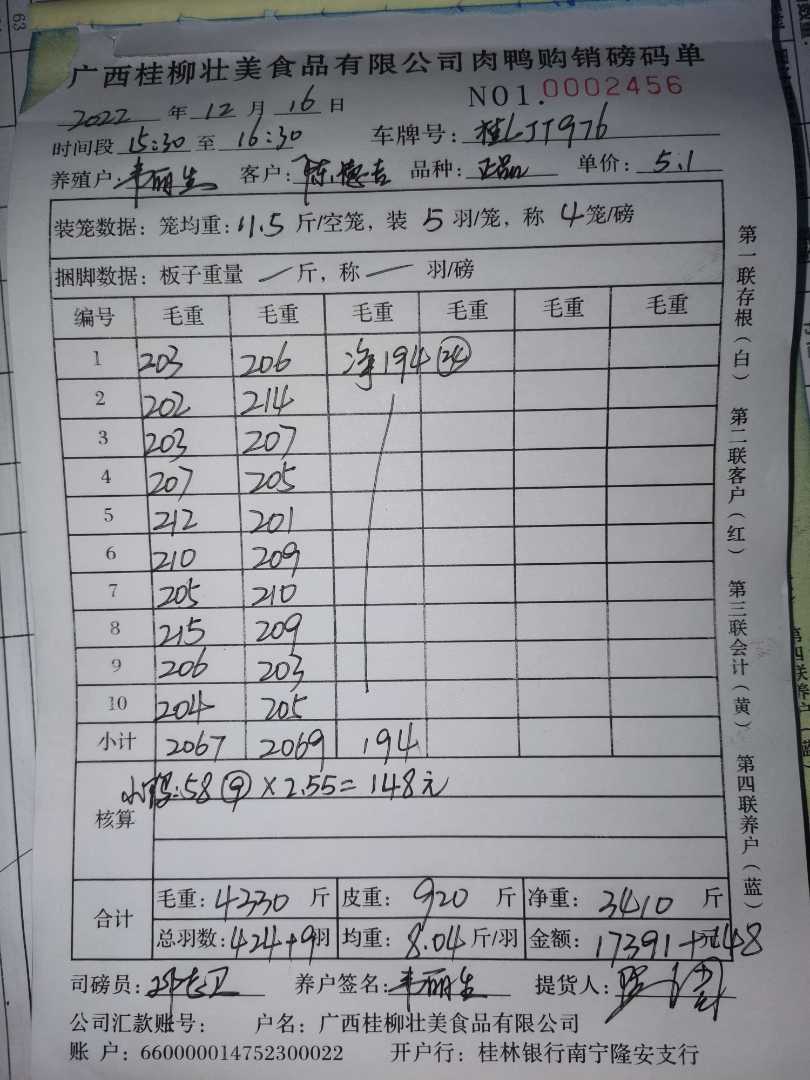 广西桂柳壮美食品有限公司肉鸭购销磅码单
2022 年 12 月 16 日 NO1.0002456
时间段 15:30 至 16:30 车牌号: 桂LJT976
养殖户: 韦丽生 客户: 陈德吉 品种: 正品 单价: 5.1
装笼数据: 笼均重: 11.5 斤/空笼, 装 5 羽/笼, 称 4 笼/磅
捆脚数据: 板子重量 一 斤, 称 一 羽/磅
编号 毛重 毛重 毛重 毛重 毛重 毛重
1 203 206 净194 24
2 202 214
3 203 207
4 207 205
5 212 201
6 210 209
7 205 210
8 215 209
9 206 203
10 204 205
小计 2067 2069 194
核算
小鸭:58 ⑨ × 2.55 = 148元
合计
毛重: 4330 斤 皮重: 920 斤 净重: 3410 斤
总羽数: 424+9 羽 均重: 8.04 斤/羽 金额: 17391+148 元
司磅员: 养户签名: 韦丽生 提货人:
公司汇款账号: 户名: 广西桂柳壮美食品有限公司
账 户: 660000014752300022 开户行: 桂林银行南宁隆安支行
第一联存根(白) 第二联客户(红) 第三联会计(黄) 第四联养户(蓝)
63